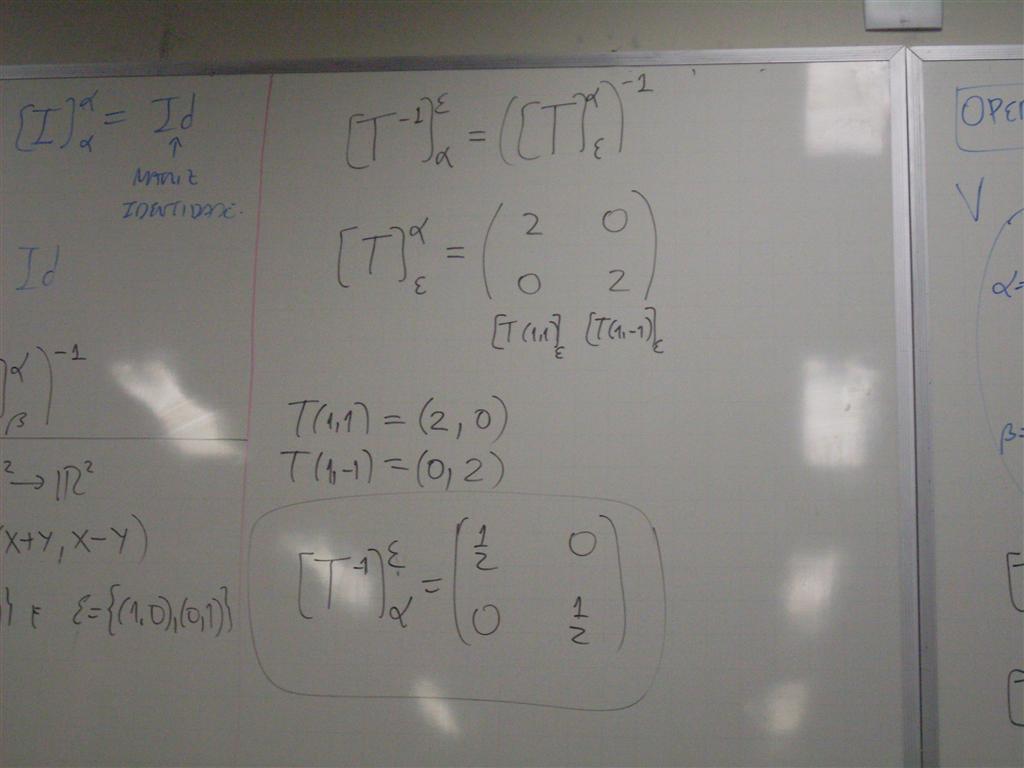 [I]^α_α = Id
↑
MATRIZ
IDENTIDADE.
Id
]^α_β)^-1
² → IR²
(X+Y, X-Y)
)} E ε={(1,0),(0,1)}
[T^-1]^ε_α = ([T]^α_ε)^-1
[T]^α_ε = ( 2 0
0 2 )
[T(1,1]_ε [T(1,-1)]_ε
T(1,1) = (2,0)
T(1,-1) = (0,2)
[T^-1]^ε_α = ( 1/2 0
0 1/2 )
OPER
V
α=
β=